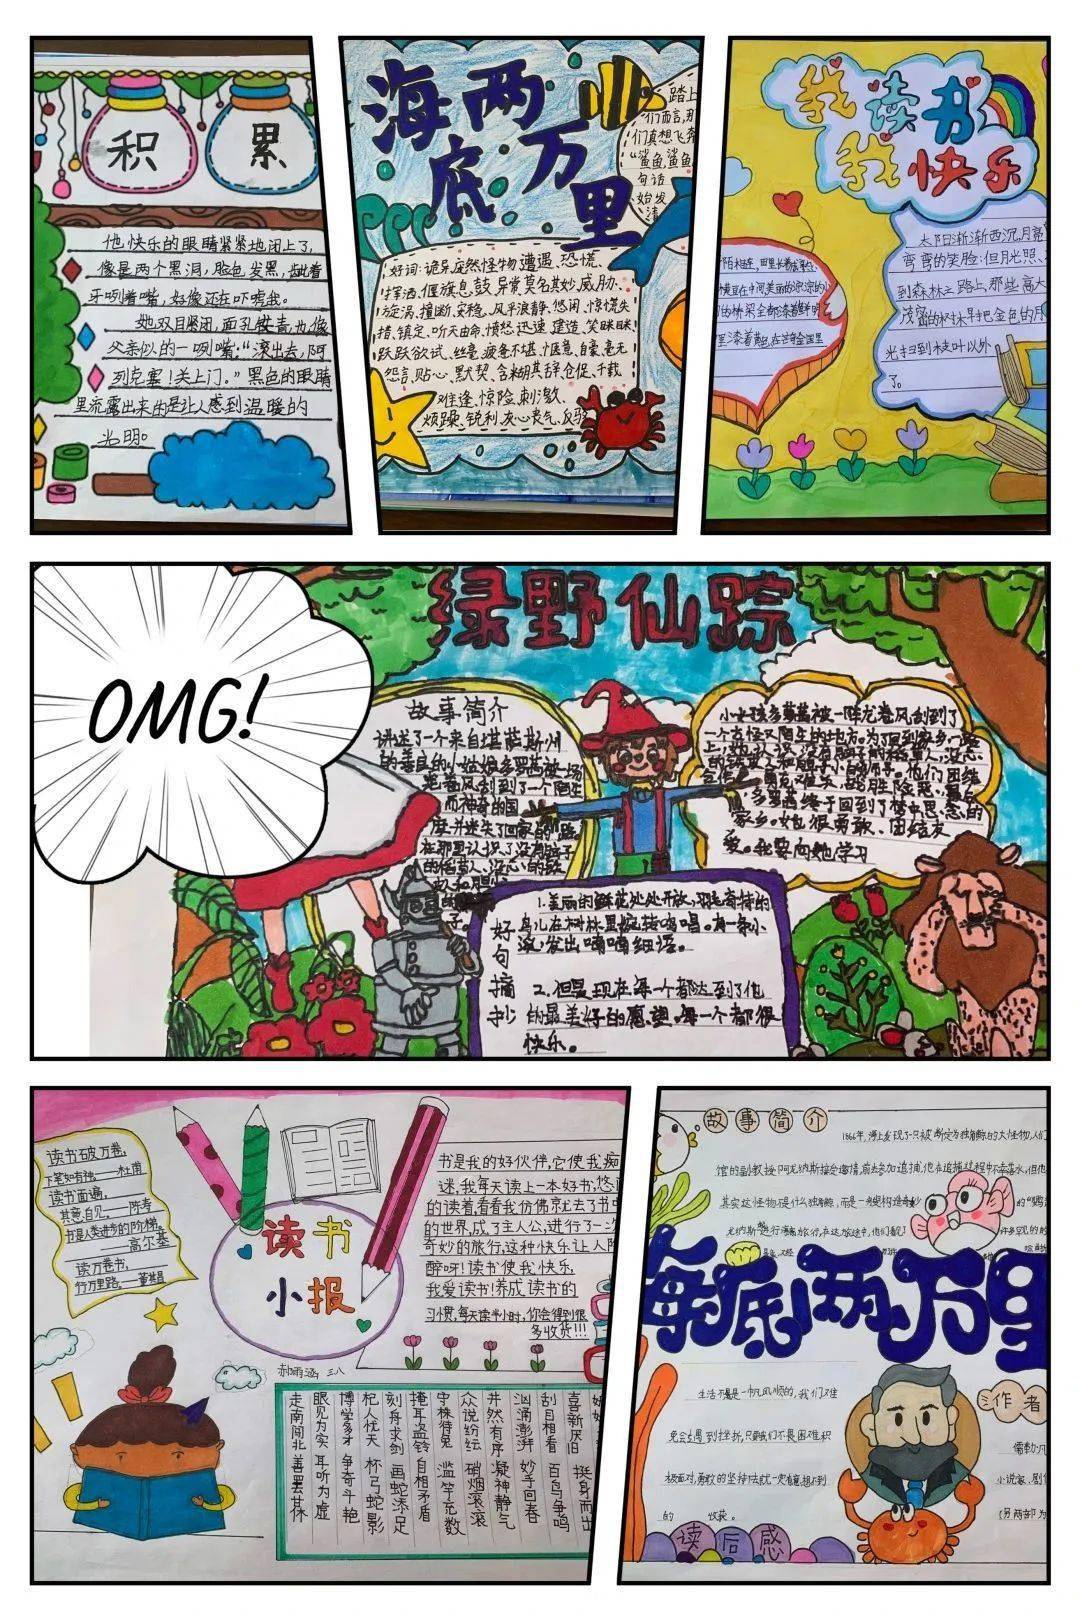 积 累
他快乐的眼睛紧紧地闭上了,
像是两个黑洞,脸色发黑,龇着
牙咧着嘴,好像还在吓唬我。
她双目紧闭,面孔铁青,也像
父亲似的一咧嘴:“滚出去,阿
列克塞!关上门。”黑色的眼睛
里流露出来的是让人感到温暖的
光明。
海底两万里
踏上
们而言,那
们真想飞奔
“鲨鱼,鲨鱼
句话
始发
好词:诡异庞然怪物遭遇、恐慌、
挥洒、偃旗息鼓、异常莫名其妙、威胁、
旋涡、擅断、安稳、风平浪静、悠闲、惊慌失
措、镇定、听天由命、愤怒、迅速、建造、笑眯眯
跃跃欲试、丝毫、疲惫不堪、惬意、自豪、毫无
怨言、贴心、默契、含糊其辞、仓促、千载
难逢、惊险、刺激、
烦躁、锐利、灰心丧气、反驳
我读书
我快乐
太阳渐渐西沉,月亮
弯弯的笑脸;但月光照
到森林之路上,那些高大
茂密的树木早把金色的月
光扫到枝叶以外
了。
OMG!
绿野仙踪
故事简介
讲述了一个来自堪萨斯州
的善良的小姑娘多罗茜被一场
龙卷风刮到了一个陌生
而神奇的国
度,并迷失了回家的路。
在那里认识了没有脑子
的稻草人、没心的铁
小女孩多萝茜被一阵龙卷风刮到了
一个古怪又陌生的地方。为了回到家乡,一路
多罗茜终于回到了梦中思念的
家乡。她很勇敢、团结友
爱。我要向她学习
好句摘抄
1.美丽的鲜花处处开放,羽毛奇特的
鸟儿在树林里婉转鸣唱。有一条小
溪,发出喃喃细语。
2.但是现在每一个都达到了他
的最美好的愿望。每一个都很
快乐。
读书破万卷,
下笔如有神。—杜甫
读书百遍,
其意自见。—陈寿
书是人类进步的阶梯。
—高尔基
读万卷书,
行万里路。—董其昌
读书
小报
书是我的好伙伴,它使我痴
迷,我每天读上一本好书,悠闲
的读着,看着我仿佛亲近去了书中
的世界,成了主人公,进行了一次
奇妙的旅行,这种快乐让人陶
醉呀!读书使我快乐,
我爱读书!养成读书的
习惯,每天读半小时,你会得到很
多收货!!!
郝雨涵 三八
喜新厌旧 挺身而出
刮目相看 百鸟争鸣
汹涌澎湃 妙手回春
井然有序 凝神静气
众说纷纭 硝烟滚滚
守株待兔 滥竽充数
掩耳盗铃 自相矛盾
刻舟求剑 画蛇添足
杞人忧天 杯弓蛇影
博学多才 争奇斗艳
眼见为实 耳听为虚
走南闯北 善罢甘休
故事简介
1866年,海上发现了一只被断定为独角鲸的大怪物,人们
馆的副教授阿龙纳斯接受邀请,前去参加追捕,他在追捕过程中不幸落水,但他
海底两万里
生活不是一帆风顺的,我们难
免会遇到挫折,只要我们不畏困难积
极面对,勇敢的坚持下去就一定有意想不到
的收获。
读后感
作者
儒勒·凡
小说家、剧作